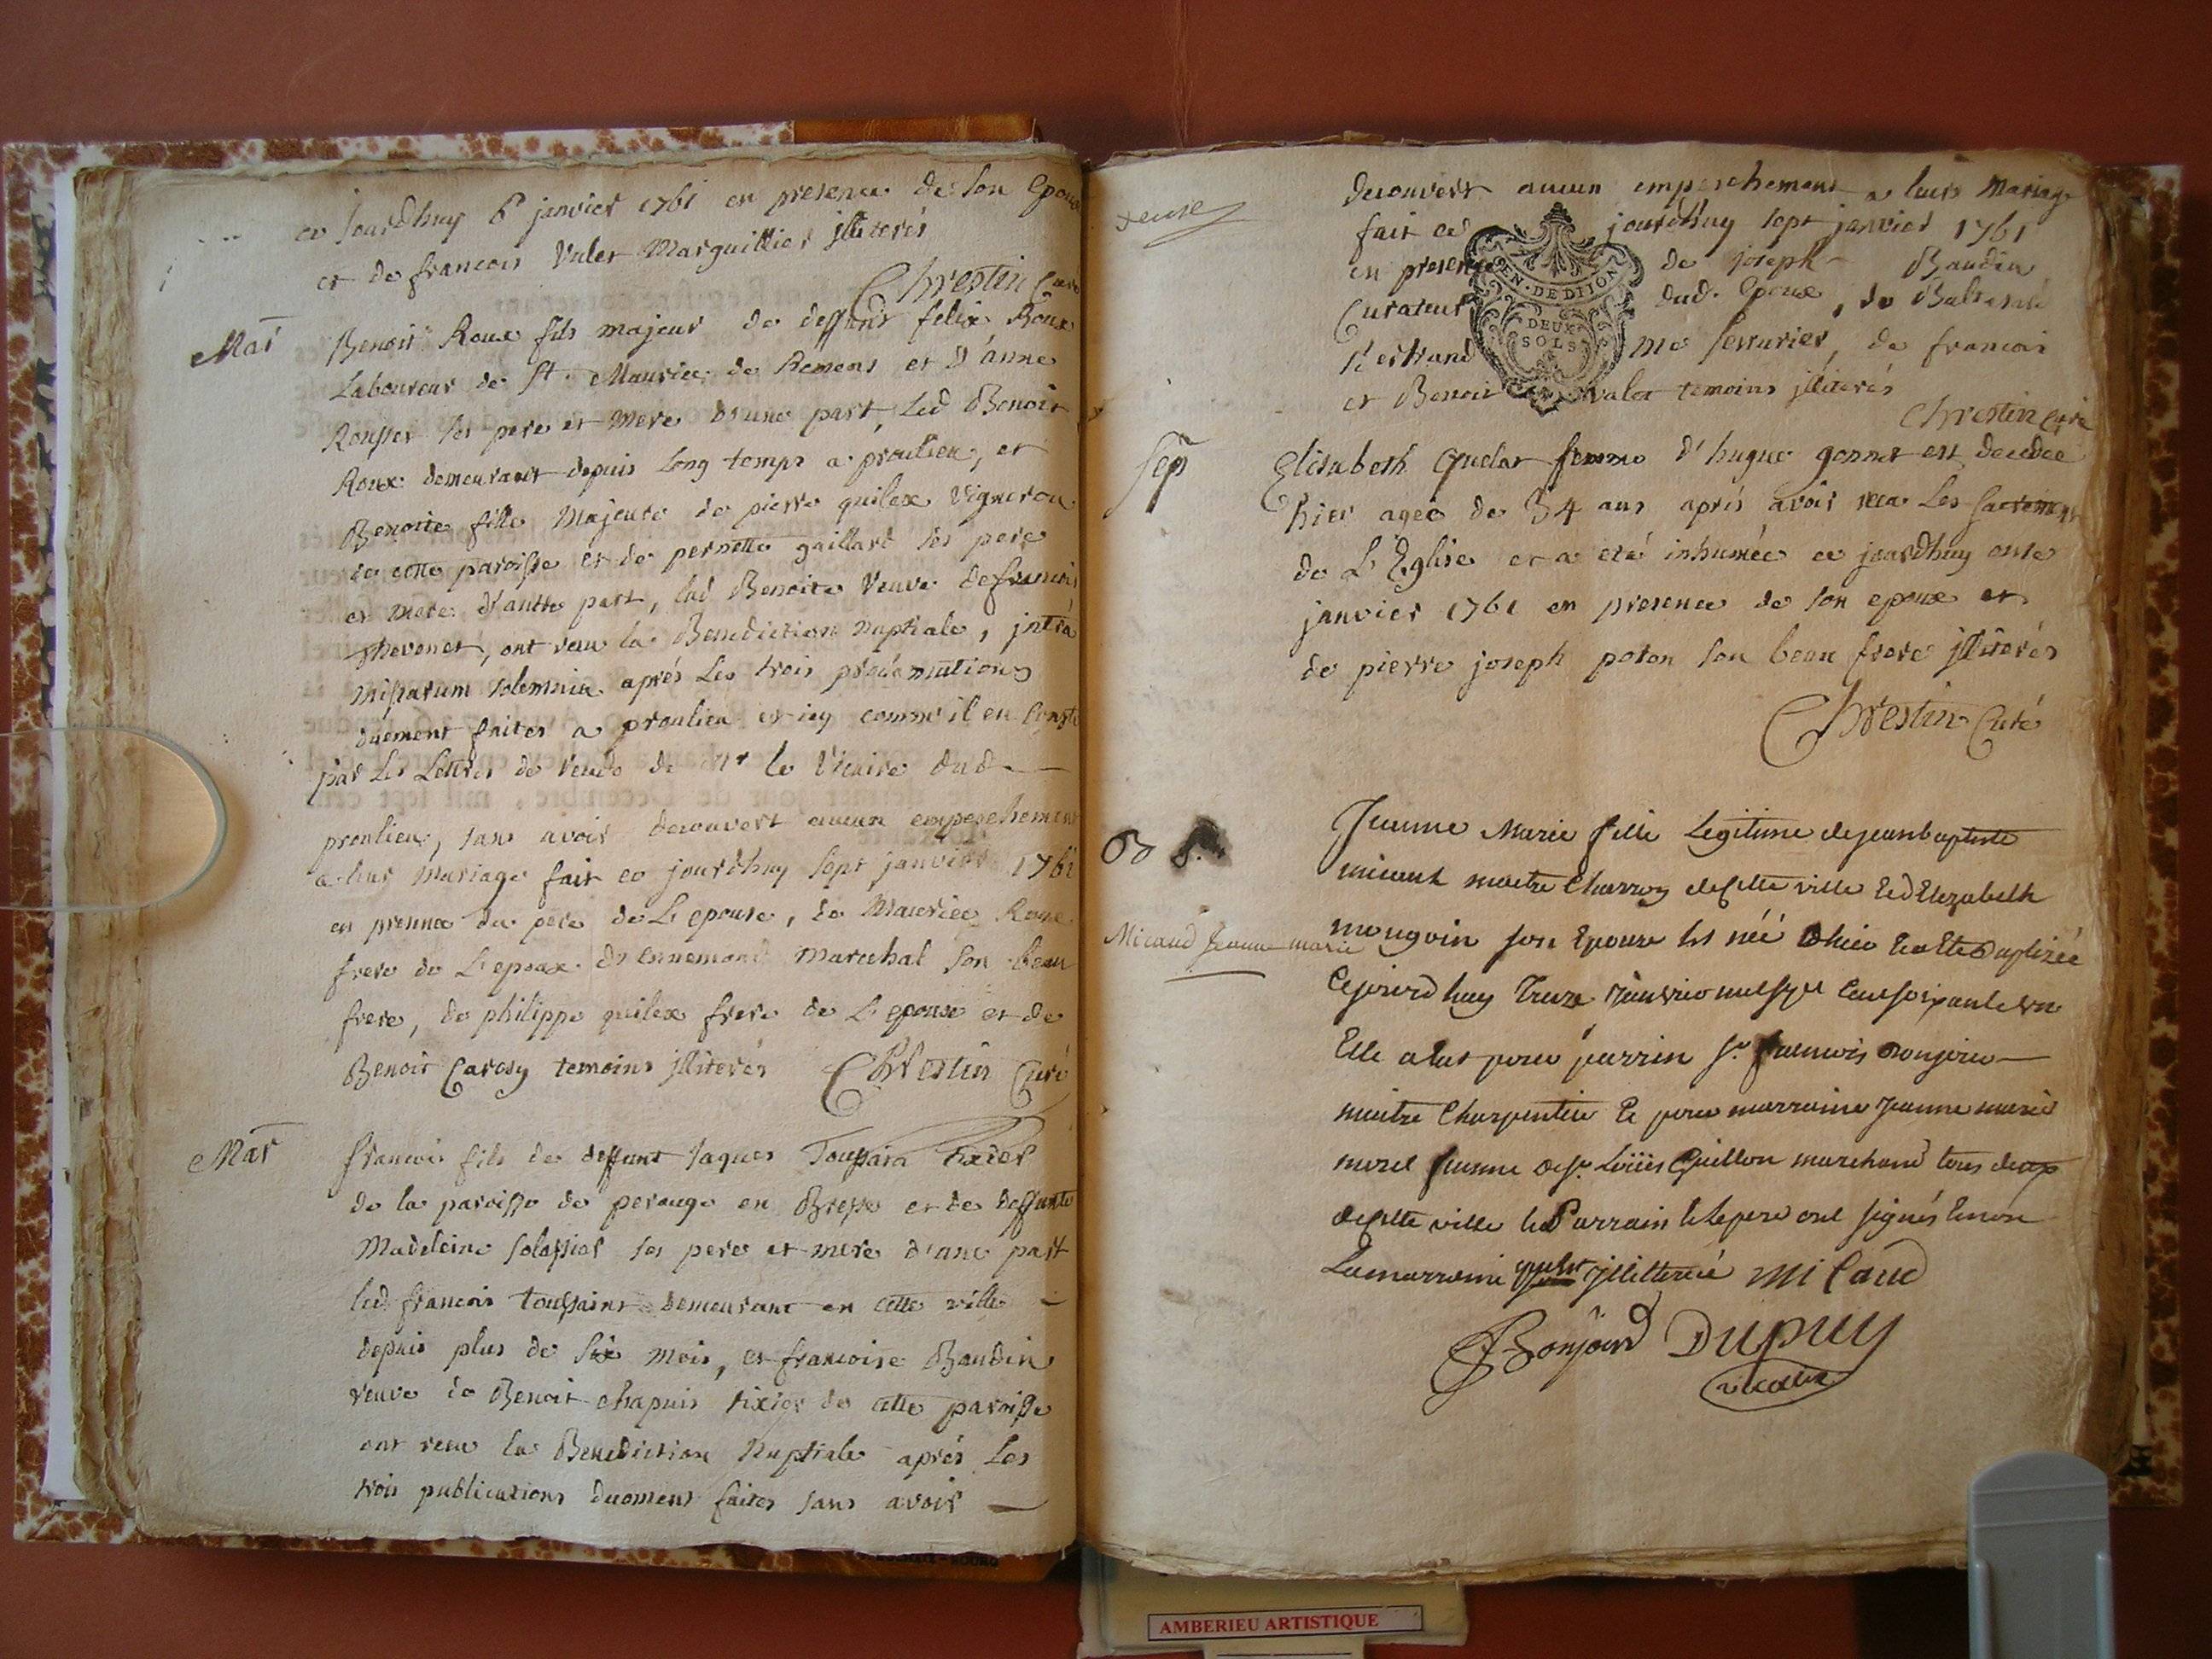 ce jourdhuy 6 janvier 1761 en presence de son Epoux
et de francois Valet Marguillier jlliterés
Chrestin Curé
Mar
Benoit Roux fils majeur de deffunt felix Roux
Laboureur de St Maurice de Remens et D'anne
Rousset ses pere et mere d'une part, Led Benoit
Roux demeurant depuis long temps a proulieu, et
Benoite fille Majeure de pierre quilex Vigneron
de cette paroisse et de pernette gaillard ses pere
et mere d'autre part, lad Benoite Veuve de francois
thevenet, ont recu la Benediction nuptiale, jntra
missarum solemnia aprés Les trois proclamations
duement faites a proulieu et icy comme il en conste
par Les Lettres de remise de Mr le Vicaire dud
proulieu, sans avoir decouvert aucun empeschement
a leur Mariage fait ce jourdhuy sept janvier 1761
en presence du pere de L'epouse, de Maurice Roux
frere de L'epoux d'ennemond Marechal son beau
frere, de philippe quilex frere de L'epouse et de
Benoit Carosy temoins jlliterés Chrestin Curé
Mar
francois fils de deffunt Jaques Toussain tixier
de la paroisse de perouge en Bresse et de deffunte
Madeleine ses pere et mere d'une part
led francois toussaint demeurant en cette ville
depuis plus de six mois, et francoise Baudin
veuve de Benoit chapuis tixier de cette paroisse
ont recu la Benediction Nuptiale aprés Les
trois publications duement faites sans avoir
decouvert aucun empeschement a leur Mariage
fait ce jourdhuy sept janvier 1761
en presence de joseph Baudin
Curateur dud. Epoux, de
me serrurier, de francois
et Benoit valet temoins jlliterés
Chrestin Curé
GEN. DE DIJON
DEUX
SOLS
Sep
Elisabeth quelat femme d'hugue gonnet est decedée
hier ageé de 34 ans aprés avoir recu Les sacremens
de L'Eglise et a eté inhumée ce jourdhuy onze
janvier 1761 en presence de son epoux et
de pierre joseph poton son beau frere jlliterés
Chrestin Curé
B
Micaud jeanne marie
Jeanne Marie fille Legitime de jeanbaptiste
micaud maitre Charron de cette ville Et d'Elizabeth
mougoin son Epouze Est néé d'hier Et a Ete Baptizéé
Cejourd'huy Treze janvier mil sept Cent soixante Un
Elle a Eut pour parrin sr francois Bonjour
maitre Charpentier Et pour marraine jeanne marie
morel femme de sr Loüis Guillon marchand tous deux
de cette ville le Parrain Et Le pere ont signés Et non
La marraine jllitterée Micaud
Bonjour Dupuy
vicaire
AMBERIEU ARTISTIQUE